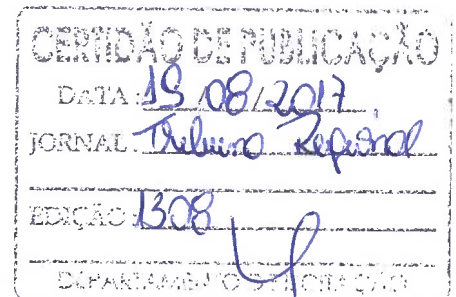 CERTIDÃO DE PUBLICAÇÃO
DATA: 19/08/2017
JORNAL: Tribuna Regional
EDIÇÃO: 1308
DEPARTAMENTO DE LICITAÇÃO